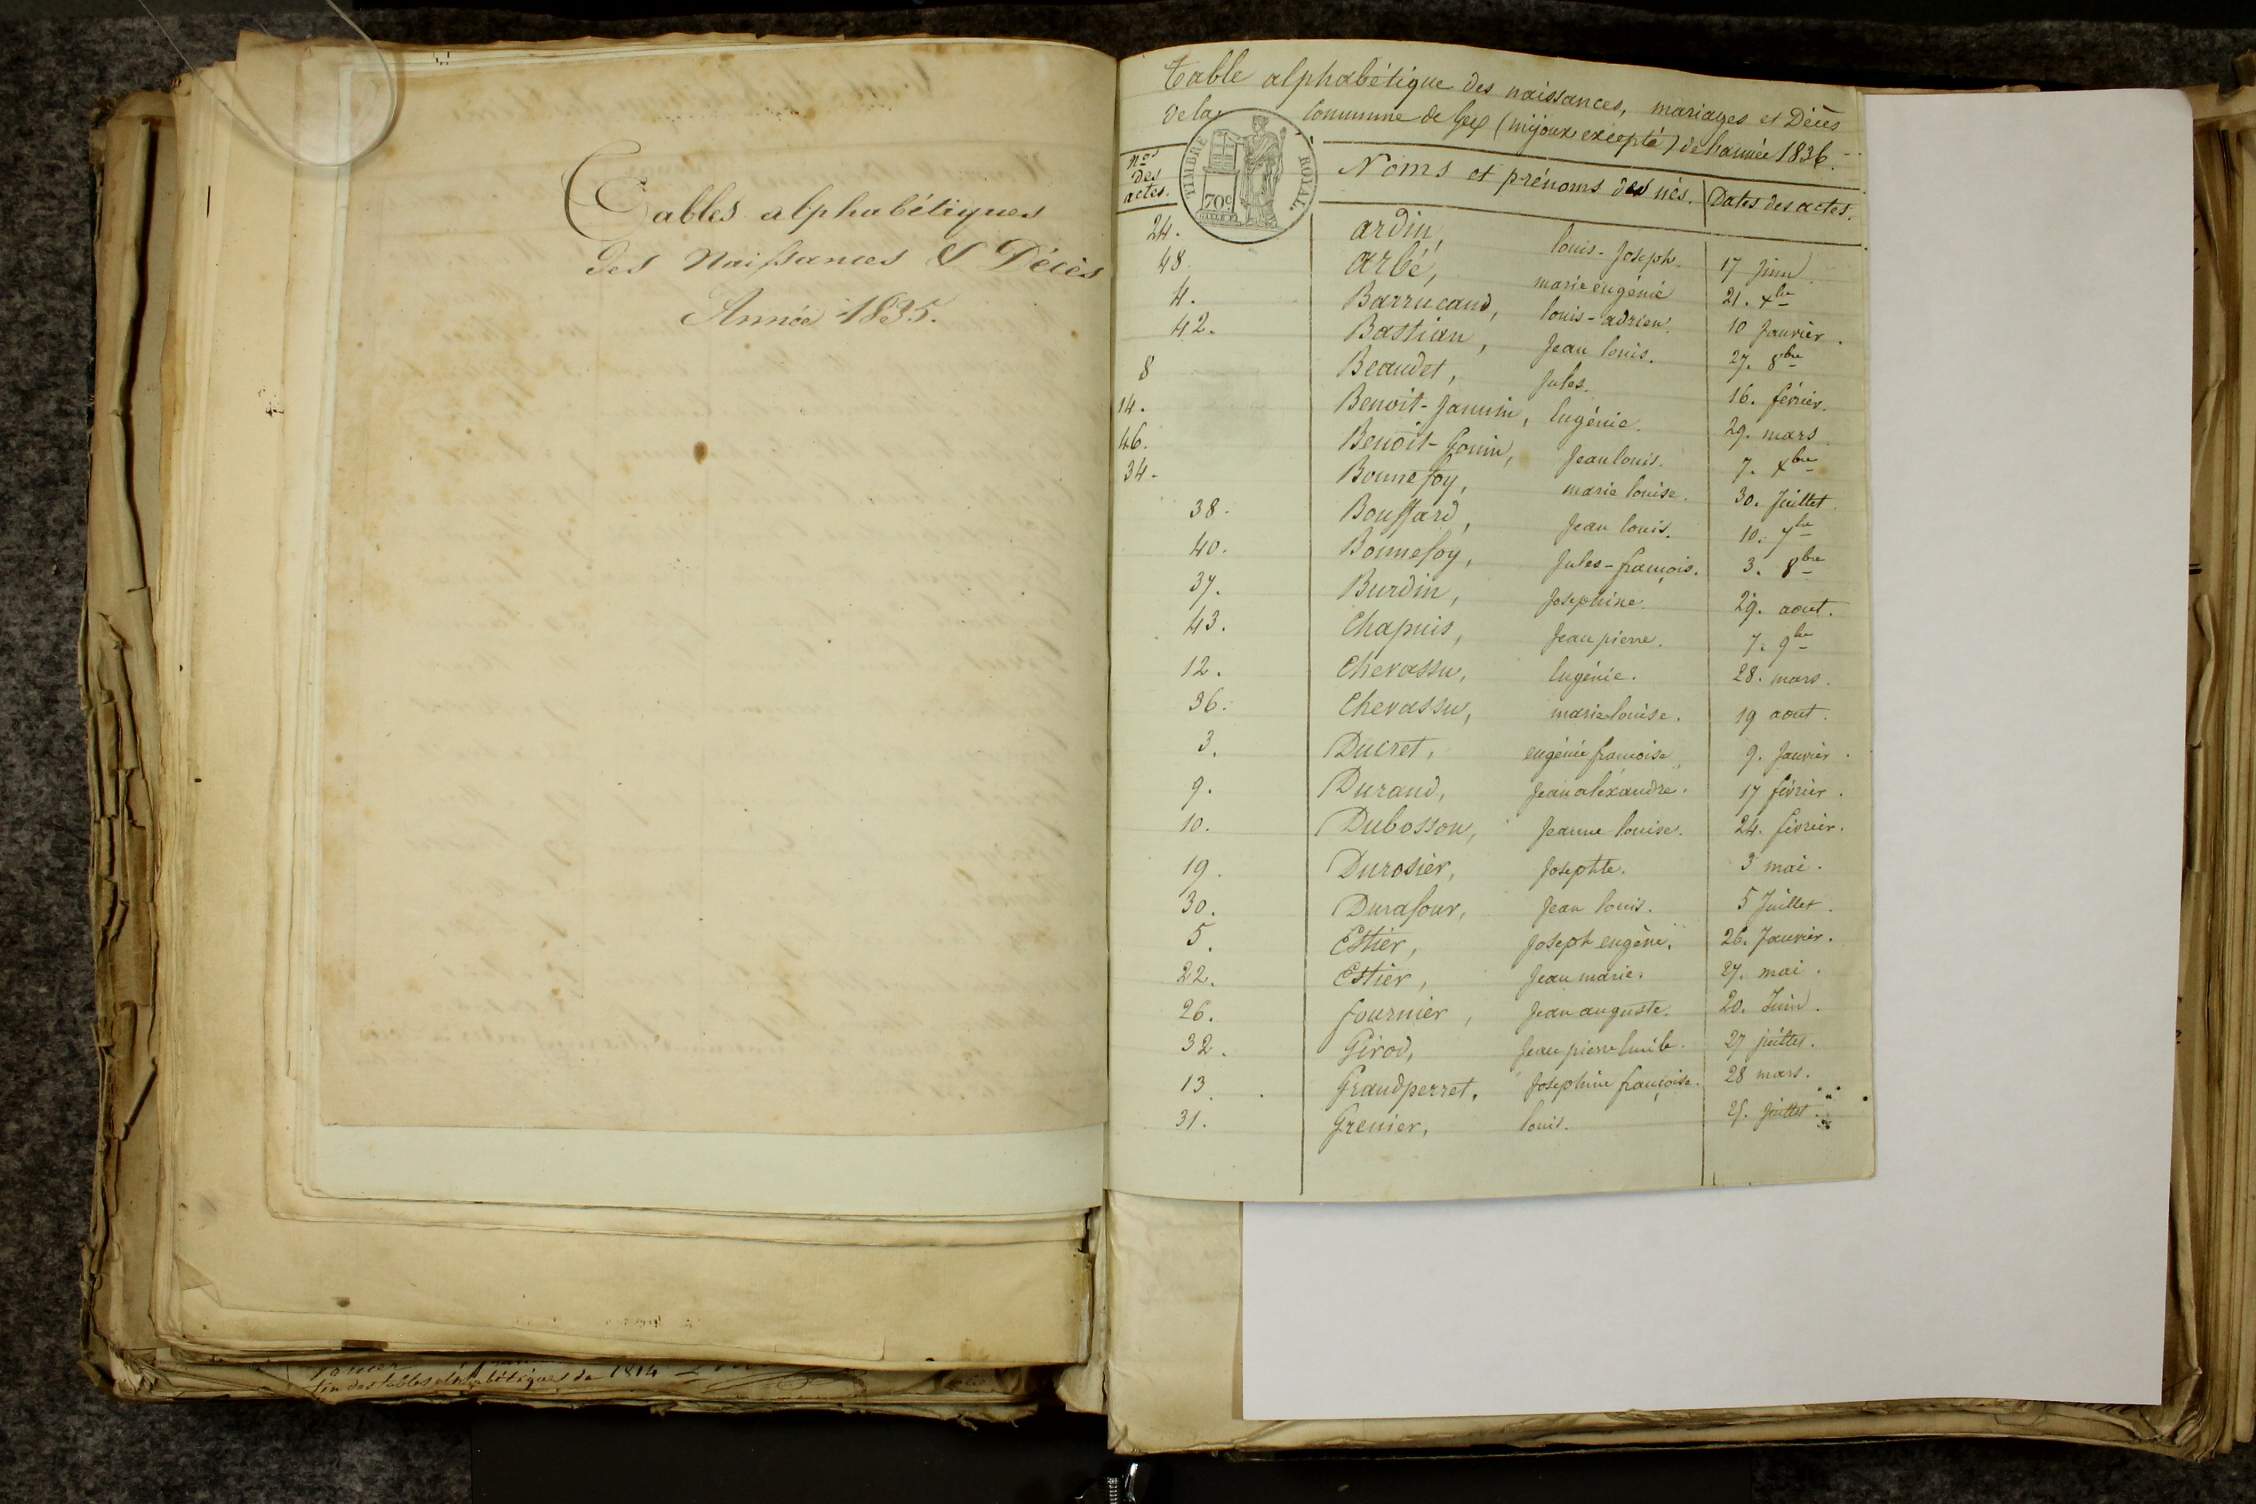 Tables alphabétiques
des Naissances & Décès
Année 1835.
fin des tables alphabétiques de 1814
Table alphabétique des naissances, mariages et Décès
de la Commune de Gex (mijoux excepté) de l'année 1836.
TIMBRE ROYAL
70c
Nos des actes. Noms et prénoms des nés. Dates des actes.
24. ardin, louis-Joseph. 17 Juin
48 arbé, marie eugénie 21. xbre
4. Barrucand, louis-adrien. 10 Janvier.
42. Bastian, Jean louis. 27. 8bre
8 Beaudet, Jules. 16. février.
14. Benoit-Jannin, Eugénie. 29. mars
46. Benoit-Gonin, Jean louis. 7. xbre
34. Bonnefoy, marie louise. 30. Juillet.
38. Bouffard, Jean louis. 10. 7bre
40. Bonnefoy, Jules-françois. 3. 8bre
37. Burdin, Josephine. 29. aout.
43. Chapuis, Jean pierre. 7. 9bre
12. Chevassu, Eugénie. 28. mars.
36. Chevassu, marie louise. 19 aout.
3. Ducret, eugénie françoise, 9. Janvier.
9. Durand, Jean aléxandre. 17 février.
10. Dubosson, Jeanne louise. 24. février.
19. Durosier, Josephte. 3 mai.
30. Durafour, Jean louis. 5 Juillet.
5. Estier, Joseph eugène. 26. Janvier.
22. Estier, Jean marie. 27. mai.
26. fournier, Jean auguste. 20. Juin.
32. Girod, Jean pierre Emile. 27 juillet.
13. Grandperret, Josephine françoise. 28 mars.
31. Grenier, louis. Juillet.